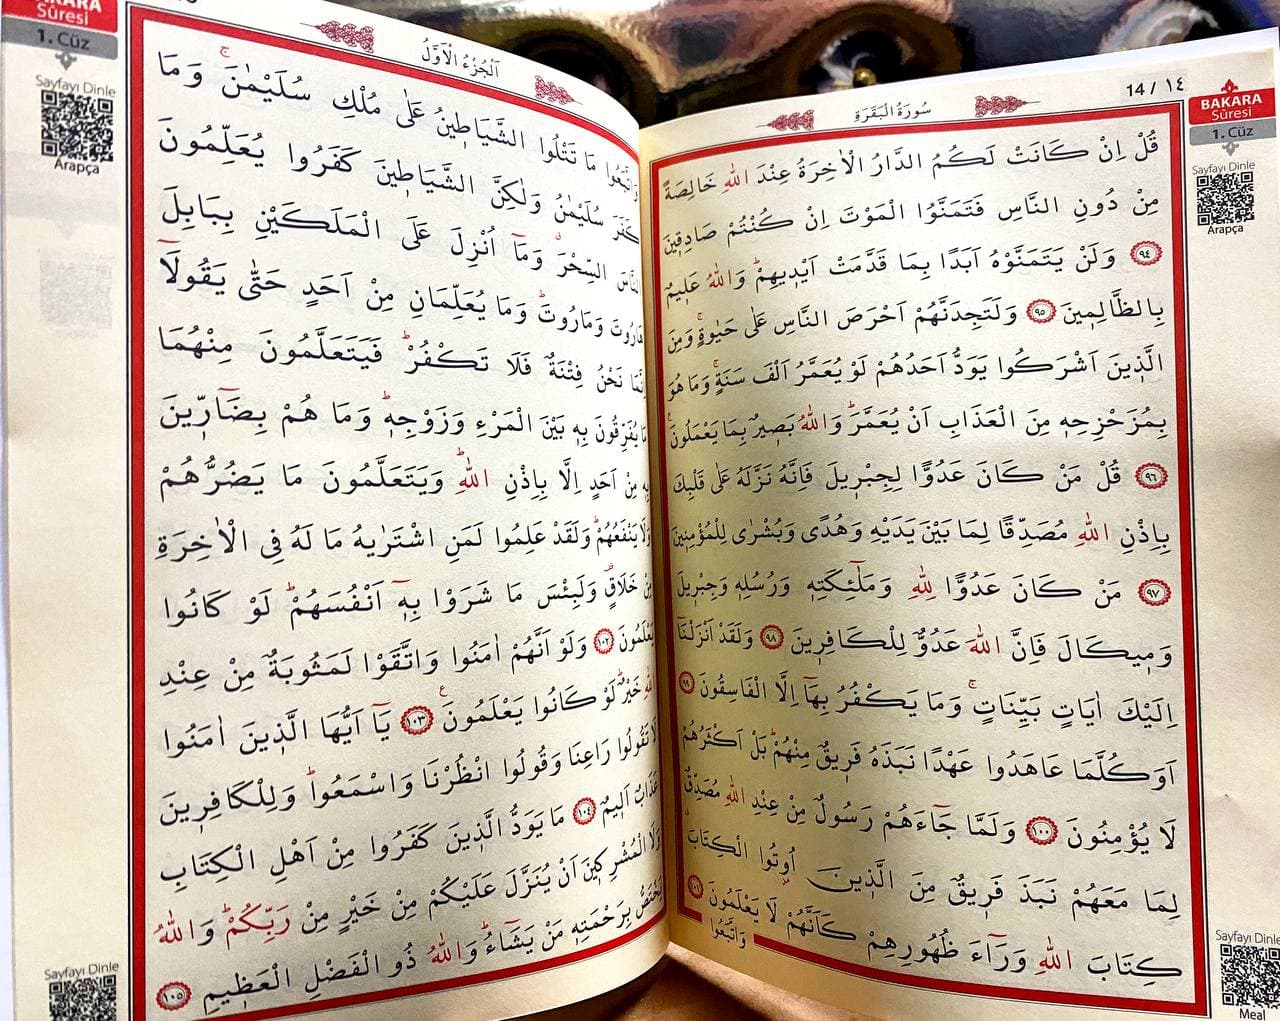 14 / ١٤
سُورَةُ الْبَقَرَةِ
BAKARA
Sûresi
1. Cüz
Sayfayı Dinle
Arapça
قُلْ اِنْ كَانَتْ لَكُمُ الدَّارُ الْاٰخِرَةُ عِنْدَ اللّٰهِ خَالِصَةً
مِنْ دُونِ النَّاسِ فَتَمَنَّوُا الْمَوْتَ اِنْ كُنْتُمْ صَادِقٖينَ
٩٤ وَلَنْ يَتَمَنَّوْهُ اَبَدًا بِمَا قَدَّمَتْ اَيْدٖيهِمْۜ وَاللّٰهُ عَلٖيمٌ
بِالظَّالِمٖينَ ٩٥ وَلَتَجِدَنَّهُمْ اَحْرَصَ النَّاسِ عَلٰى حَيٰوةٍۚ وَمِنَ
الَّذٖينَ اَشْرَكُوا يَوَدُّ اَحَدُهُمْ لَوْ يُعَمَّرُ اَلْفَ سَنَةٍۚ وَمَا هُوَ
بِمُزَحْزِحِهٖ مِنَ الْعَذَابِ اَنْ يُعَمَّرَۜ وَاللّٰهُ بَصٖيرٌ بِمَا يَعْمَلُونَ۟
٩٦ قُلْ مَنْ كَانَ عَدُوًّا لِجِبْرٖيلَ فَاِنَّهُ نَزَّلَهُ عَلٰى قَلْبِكَ
بِاِذْنِ اللّٰهِ مُصَدِّقًا لِمَا بَيْنَ يَدَيْهِ وَهُدًى وَبُشْرٰى لِلْمُؤْمِنٖينَ
٩٧ مَنْ كَانَ عَدُوًّا لِلّٰهِ وَمَلٰٓئِكَتِهٖ وَرُسُلِهٖ وَجِبْرٖيلَ
وَمٖيكَالَ فَاِنَّ اللّٰهَ عَدُوٌّ لِلْكَافِرٖينَ ٩٨ وَلَقَدْ اَنْزَلْنَٓا
اِلَيْكَ اٰيَاتٍ بَيِّنَاتٍۚ وَمَا يَكْفُرُ بِهَٓا اِلَّا الْفَاسِقُونَ ٩٩
اَوَكُلَّمَا عَاهَدُوا عَهْدًا نَبَذَهُ فَرٖيقٌ مِنْهُمْۜ بَلْ اَكْثَرُهُمْ
لَا يُؤْمِنُونَ ١٠٠ وَلَمَّا جَٓاءَهُمْ رَسُولٌ مِنْ عِنْدِ اللّٰهِ مُصَدِّقٌ
لِمَا مَعَهُمْ نَبَذَ فَرٖيقٌ مِنَ الَّذٖينَ اُوتُوا الْكِتَابَۗ
كِتَابَ اللّٰهِ وَرَٓاءَ ظُهُورِهِمْ كَاَنَّهُمْ لَا يَعْلَمُونَۘ ١٠١
وَاتَّبَعُوا
Sayfayı Dinle
Meal
اَلْجُزْءُ الْاَوَّلُ
BAKARA
Sûresi
1. Cüz
Sayfayı Dinle
Arapça
وَاتَّبَعُوا مَا تَتْلُوا الشَّيَاطٖينُ عَلٰى مُلْكِ سُلَيْمٰنَۚ وَمَا
كَفَرَ سُلَيْمٰنُ وَلٰكِنَّ الشَّيَاطٖينَ كَفَرُوا يُعَلِّمُونَ
النَّاسَ السِّحْرَۗ وَمَٓا اُنْزِلَ عَلَى الْمَلَكَيْنِ بِبَابِلَ
هَارُوتَ وَمَارُوتَۜ وَمَا يُعَلِّمَانِ مِنْ اَحَدٍ حَتّٰى يَقُولَٓا
اِنَّمَا نَحْنُ فِتْنَةٌ فَلَا تَكْفُرْۜ فَيَتَعَلَّمُونَ مِنْهُمَا
مَا يُفَرِّقُونَ بِهٖ بَيْنَ الْمَرْءِ وَزَوْجِهٖۜ وَمَا هُمْ بِضَٓارّٖينَ
بِهٖ مِنْ اَحَدٍ اِلَّا بِاِذْنِ اللّٰهِۜ وَيَتَعَلَّمُونَ مَا يَضُرُّهُمْ
وَلَا يَنْفَعُهُمْۜ وَلَقَدْ عَلِمُوا لَمَنِ اشْتَرٰيهُ مَا لَهُ فِي الْاٰخِرَةِ
مِنْ خَلَاقٍۗ وَلَبِئْسَ مَا شَرَوْا بِهٖٓ اَنْفُسَهُمْۜ لَوْ كَانُوا
يَعْلَمُونَ ١٠٢ وَلَوْ اَنَّهُمْ اٰمَنُوا وَاتَّقَوْا لَمَثُوبَةٌ مِنْ عِنْدِ
اللّٰهِ خَيْرٌۜ لَوْ كَانُوا يَعْلَمُونَ۟ ١٠٣ يَٓا اَيُّهَا الَّذٖينَ اٰمَنُوا
لَا تَقُولُوا رَاعِنَا وَقُولُوا انْظُرْنَا وَاسْمَعُواۜ وَلِلْكَافِرٖينَ
عَذَابٌ اَلٖيمٌ ١٠٤ مَا يَوَدُّ الَّذٖينَ كَفَرُوا مِنْ اَهْلِ الْكِتَابِ
وَلَا الْمُشْرِكٖينَ اَنْ يُنَزَّلَ عَلَيْكُمْ مِنْ خَيْرٍ مِنْ رَبِّكُمْۜ وَاللّٰهُ
يَخْتَصُّ بِرَحْمَتِهٖ مَنْ يَشَٓاءُۜ وَاللّٰهُ ذُو الْفَضْلِ الْعَظٖيمِ ١٠٥
Sayfayı Dinle